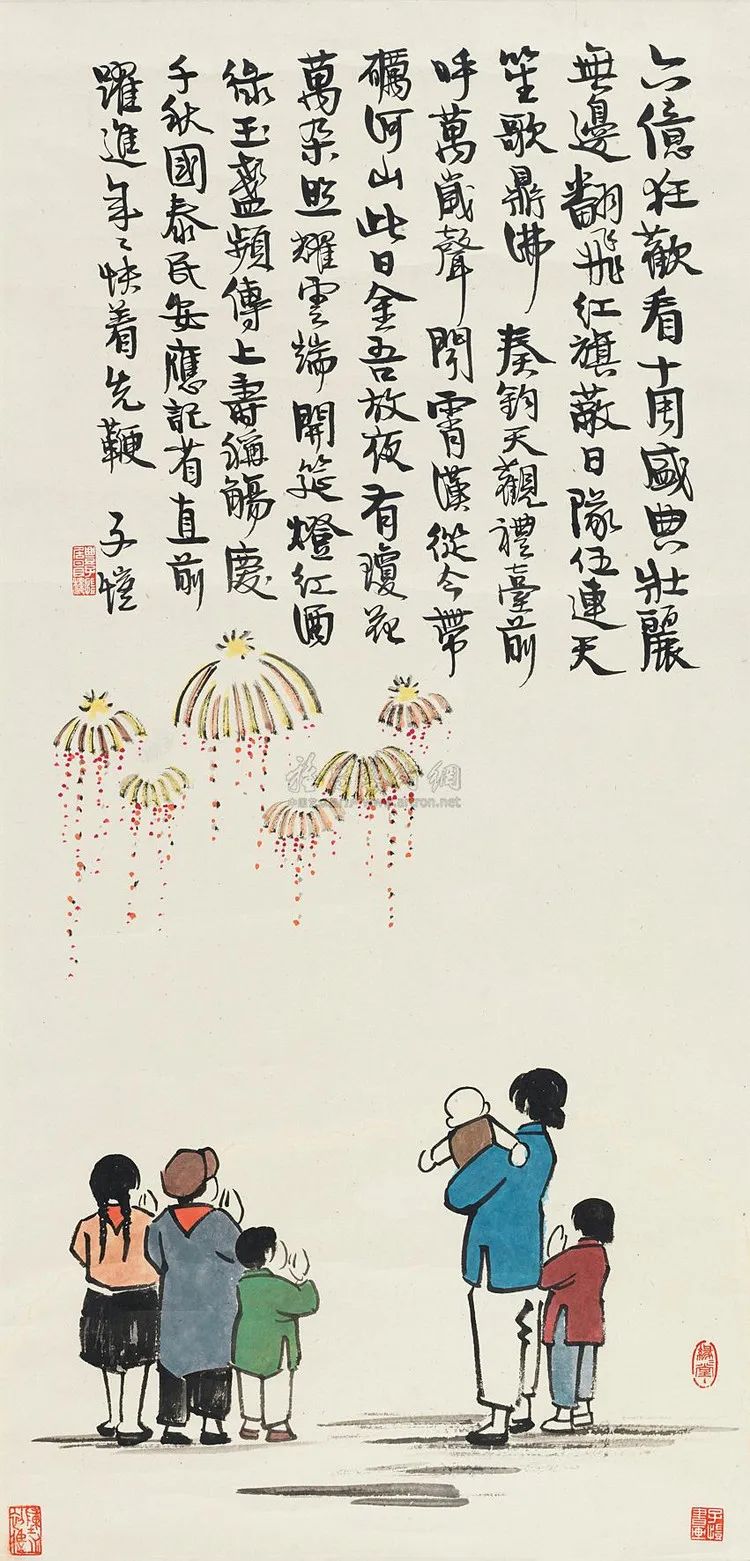 六億狂歡看十周盛典壯麗
無邊翻飛紅旗蔽日隊伍連天
笙歌鼎沸奏鈞天觀禮臺前
呼萬歲聲聞霄漢從今帶
礪河山此日金吾放夜有瓊花
萬朵照耀雲端開筵燈紅酒
綠玉盞頻傳上壽稱觴慶
千秋國泰民安應記省直前
躍進年〻快着先鞭 子愷
子愷書畫